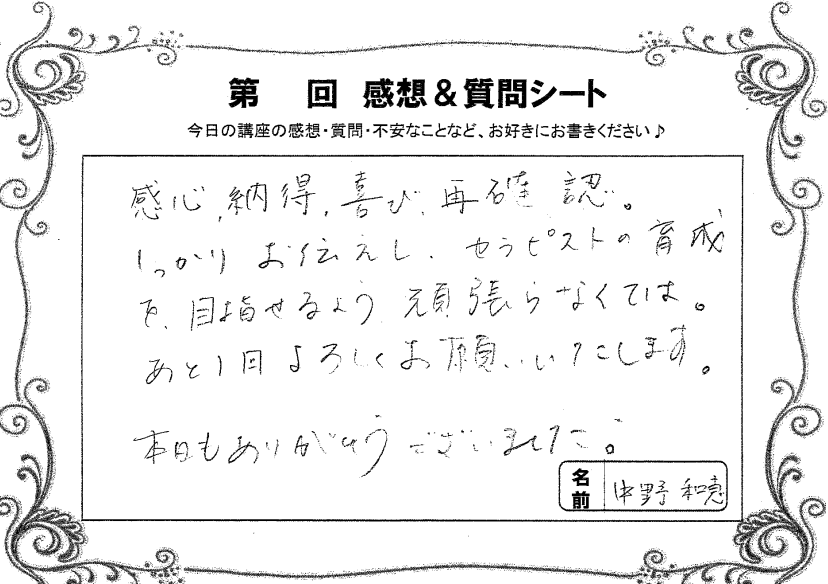 第　回 感想＆質問シート
今日の講座の感想・質問・不安なことなど、お好きにお書きください♪
感心,納得,喜び,再確認。
しっかりお伝えし、セラピストの育成
を、目指せるよう 頑張らなくては。
あと1回よろしくお願いいたします。
本日もありがとうございました。
名前 中野 和恵